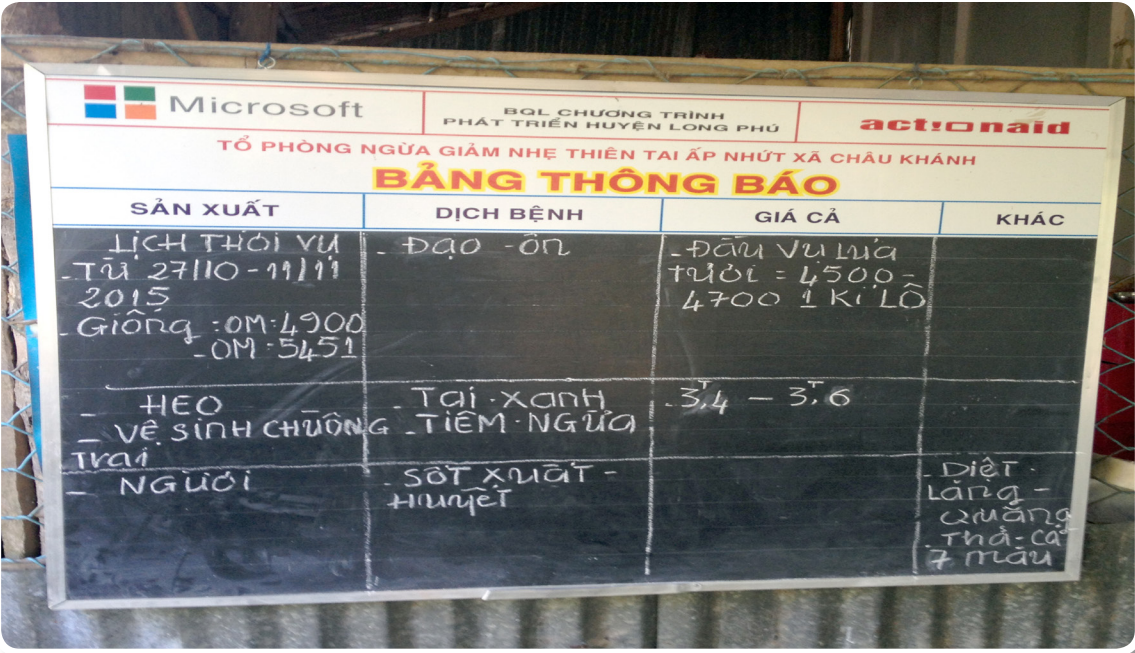 Microsoft
BQL CHƯƠNG TRÌNH
PHÁT TRIỂN HUYỆN LONG PHÚ
act!onaid
TỔ PHÒNG NGỪA GIẢM NHẸ THIÊN TAI ẤP NHỨT XÃ CHÂU KHÁNH
BẢNG THÔNG BÁO
SẢN XUẤT
DỊCH BỆNH
GIÁ CẢ
KHÁC
LỊCH THỜI VỤ
- Từ 27/10 - 11/11
2015
- Giống : OM: 4900
- OM: 5451
- Đạo - ôn
- Đầu vụ lúa
tươi = 4500 -
4700 1 Kí LÔ
- HEO
- VỆ SINH CHUỒNG
Trại
- Tai . xanH
- TIÊM . NGỪA
- 3,T4 - 3,T6
- NGƯỜI
- SỐT XUẤT -
Huyết
- Diệt .
Lăng -
Quăng
- Thả - cá
7 màu